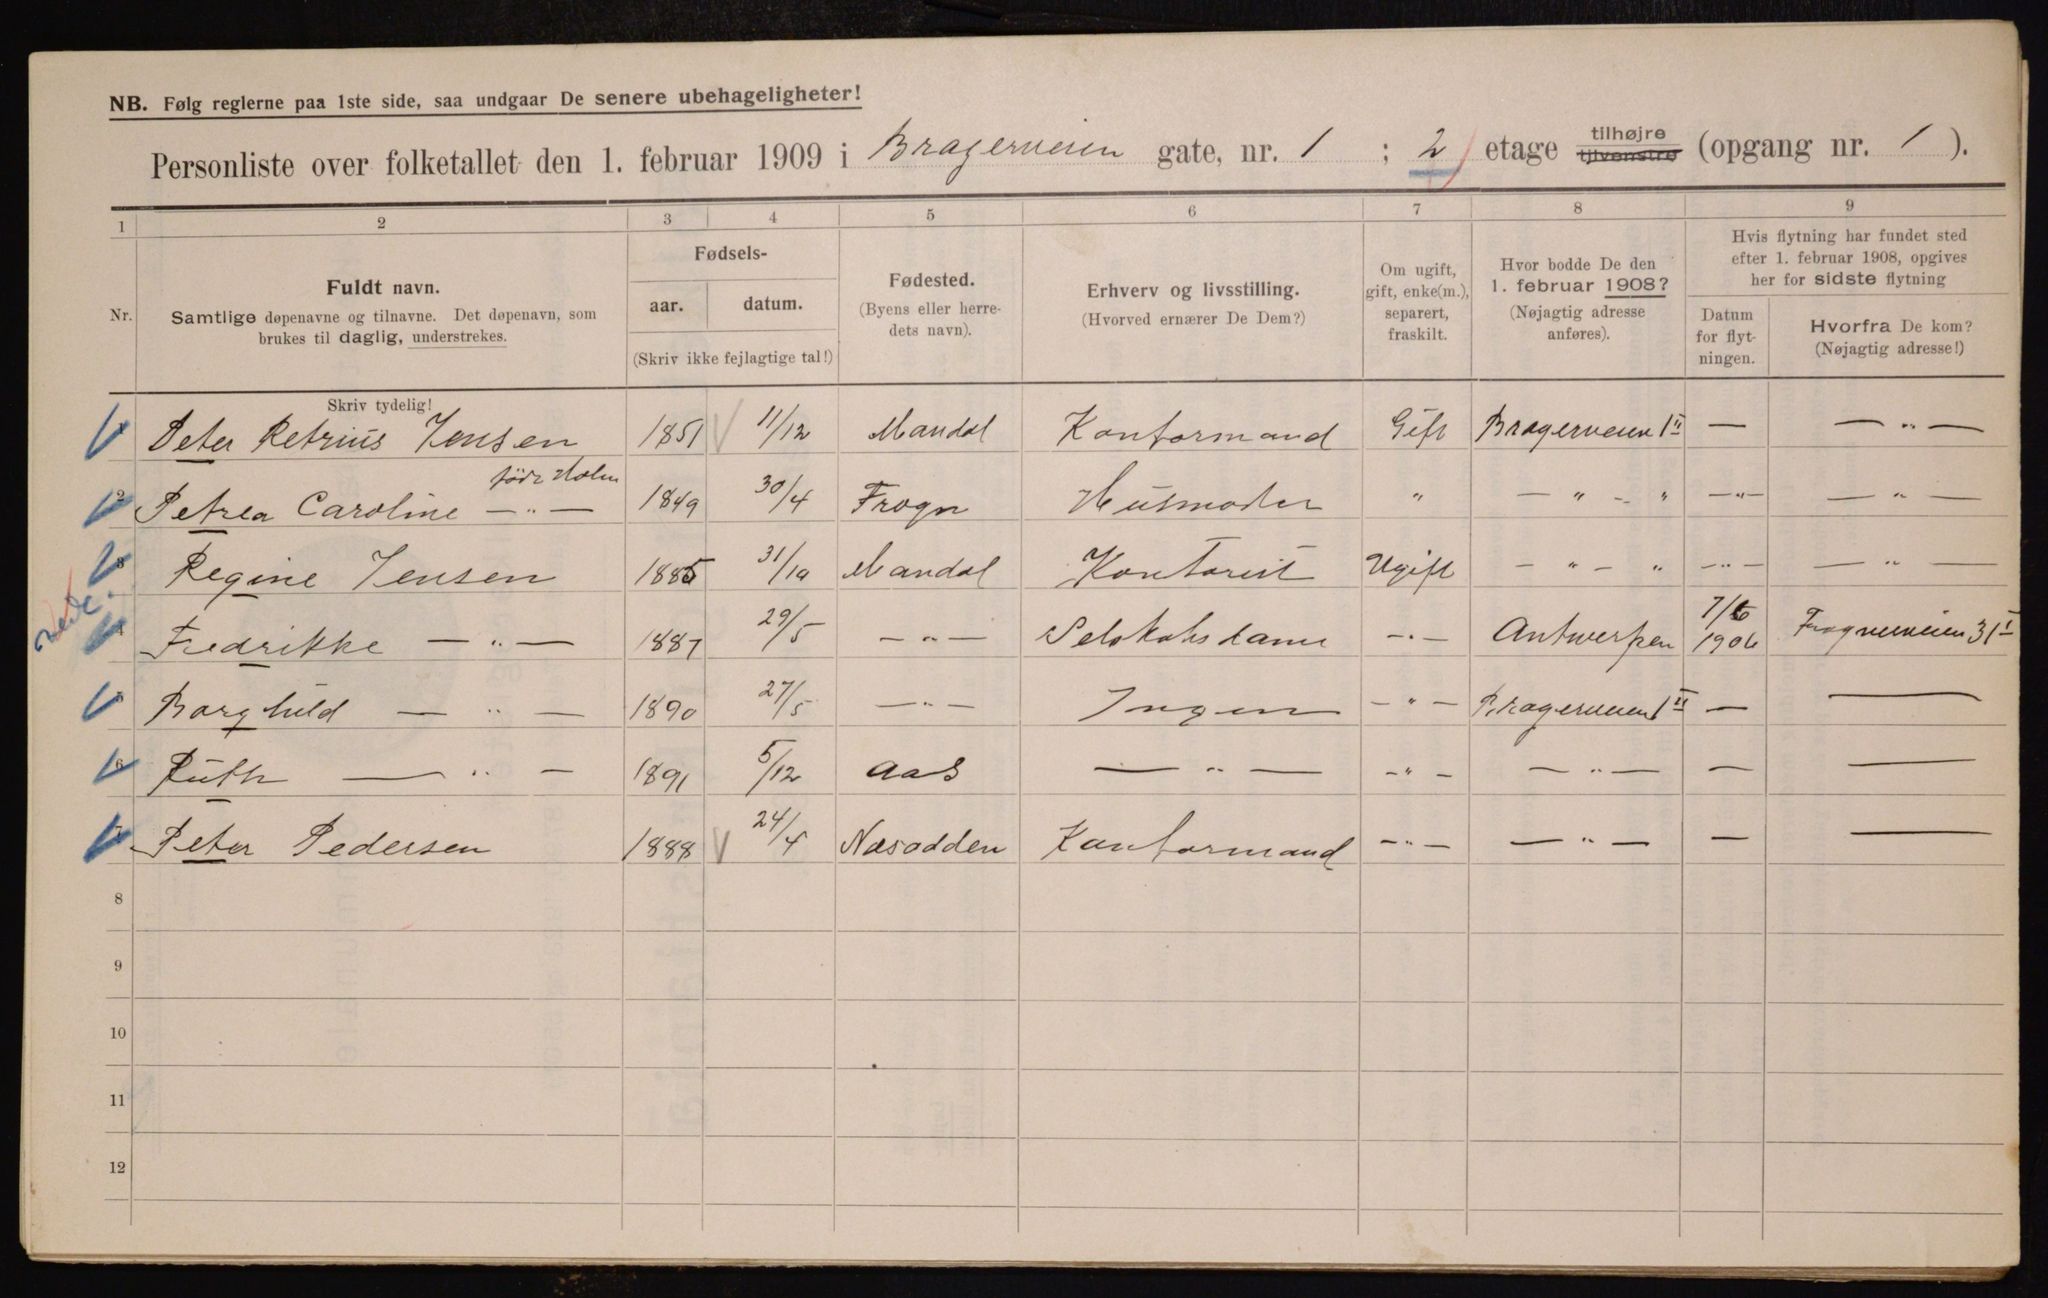 NB. Følg reglerne paa 1ste side, saa undgaar De senere ubehageligheter!
Personliste over folketallet den 1. februar 1909 i Bragerveien gate, nr. 1 ; 2 etage tilhøjre tilvenstre (opgang nr. 1 ).
1 2 3 4 5 6 7 8 9
Nr.
Fuldt navn.
Samtlige døpenavne og tilnavne. Det døpenavn, som
brukes til daglig, understrekes.
Skriv tydelig!
Fødsels-
aar. datum.
(Skriv ikke fejlagtige tal!)
Fødested.
(Byens eller herre-
dets navn).
Erhverv og livsstilling.
(Hvorved ernærer De Dem?)
Om ugift,
gift, enke(m.),
separert,
fraskilt.
Hvor bodde De den
1. februar 1908?
(Nøjagtig adresse
anføres).
Hvis flytning har fundet sted
efter 1. februar 1908, opgives
her for sidste flytning
Datum
for flyt-
ningen.
Hvorfra De kom?
(Nøjagtig adresse!)
Peter Petrius Jensen 1851 11/12 Mandal Kontormand Gift Bragerveien 1 II — — " —
født Holm
2 Petrea Caroline — " — 1849 30/4 Frogn Husmoder " — " — " — " — — " —
3 Regine Jensen 1885 31/10 Mandal Kontorist Ugift — " — " — " — — " —
4 Fredrikke — " — 1887 29/5 — " — Selskabsdame — " — Antwerpen 7/6 1906 Frognerveien 31 I
5 Borghild — " — 1890 27/5 — " — Ingen — " — Bragerveien 1 II — —
6 Ruth — " — 1891 5/12 Aas — " — — " — — " — — —
7 Peter Pedersen 1888 24/4 Næsodden Kontormand — " — — " — — —
8
9
10
11
12